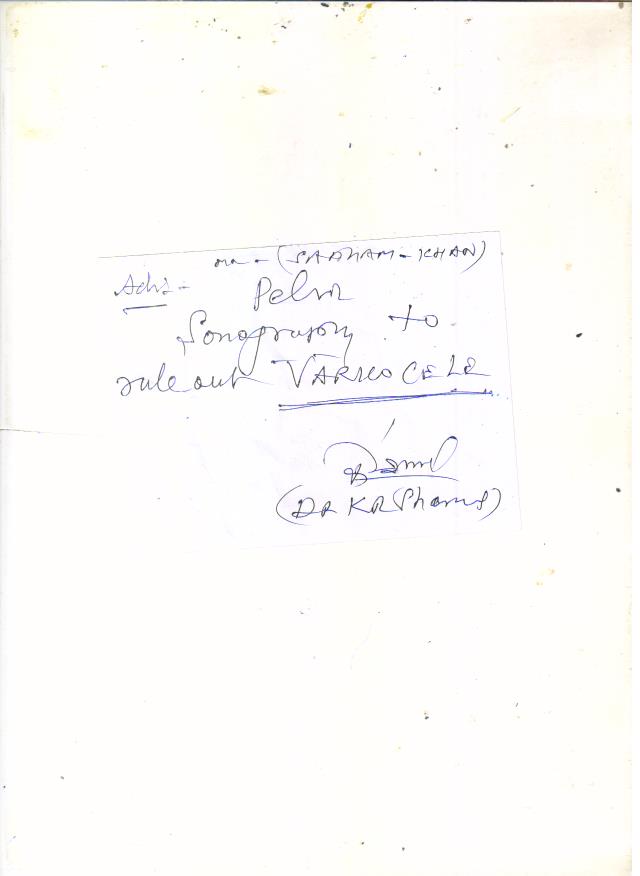 mr - (SADHAM - KHAN)
Adv -
Pelvic
Sonography to
rule out VARICOCELE
(DR KR Sharma)